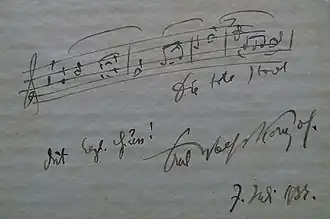 Die tote Stadt
Mit begl. Grüßen!
Erich Wolfgang Korngold.
7. Juli 1933.